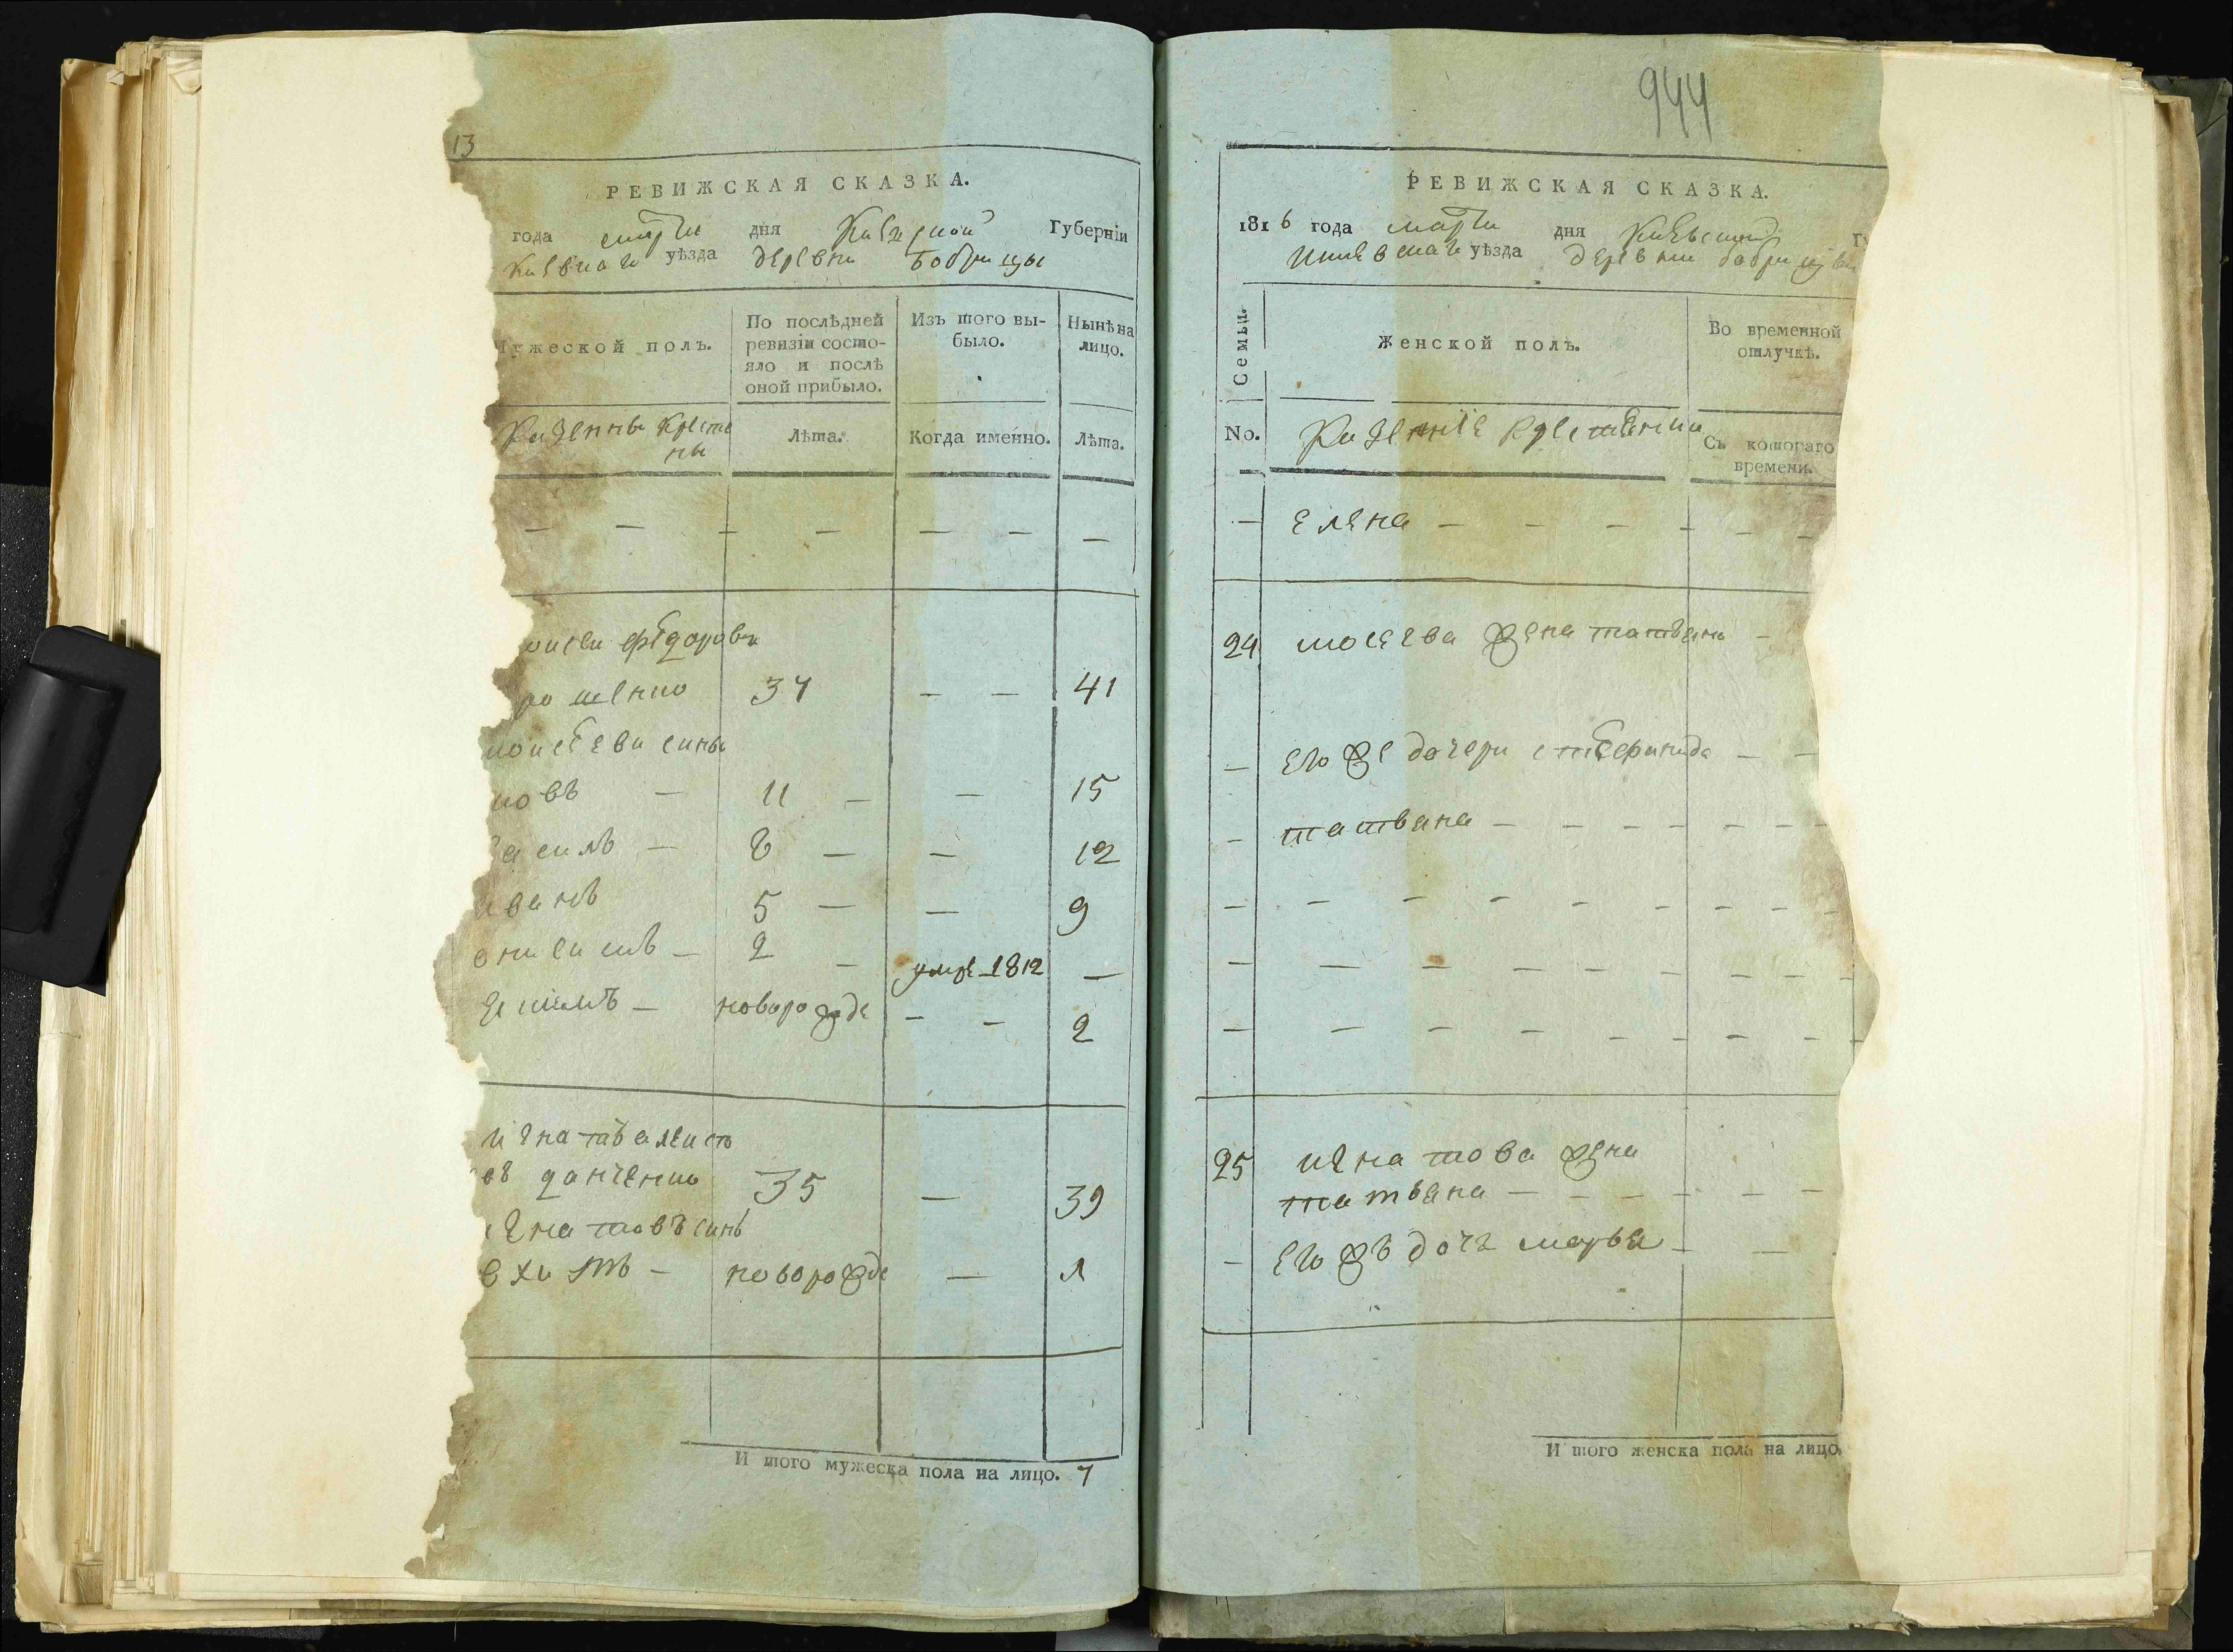 13
РЕВИЖСКАЯ СКАЗКА.
года марта дня Киевской Губерніи
Киевскаго уѣзда деревни Бобрицы
Мужеской полъ.
По послѣдней ревизіи состояло и послѣ оной прибыло.
Изъ того выбыло.
Нынѣ на лицо.
Казенны крестяны
Лѣта.
Когда именно.
Лѣта.
— — — — — — —
оисеи федоровъ
ро шенко 37 — — 41
моисѣеви сины
ковъ — 11 — — 15
асилъ — 8 — — 12
иванъ 5 — — 9
онисимъ — 2 — умре 1812 —
новорожде — — 2
игнатъ алеисѣ
въ данченко 35 — 39
игнатовъ синъ
новорожде — 1
И того мужеска пола на лицо. 7
944
РЕВИЖСКАЯ СКАЗКА.
1816 года марта дня Киевской Гу
Киевскаго уѣзда деревни бобрицы
Семьи.
Женской полъ.
Во временной отлучкѣ.
No.
Казенние крестяни
Съ котораго времени.
— елена — — — — — —
24 мосеева жена татьяна —
— его же дочери стефанида — —
— татьяна — — — — — — —
— — — — — — — — —
— — — — — — — — —
— — — — — — — — —
25 игнатова жена
татьяна — — — — — —
— его жъ дочъ марья — —
И того женска пола на лицо.